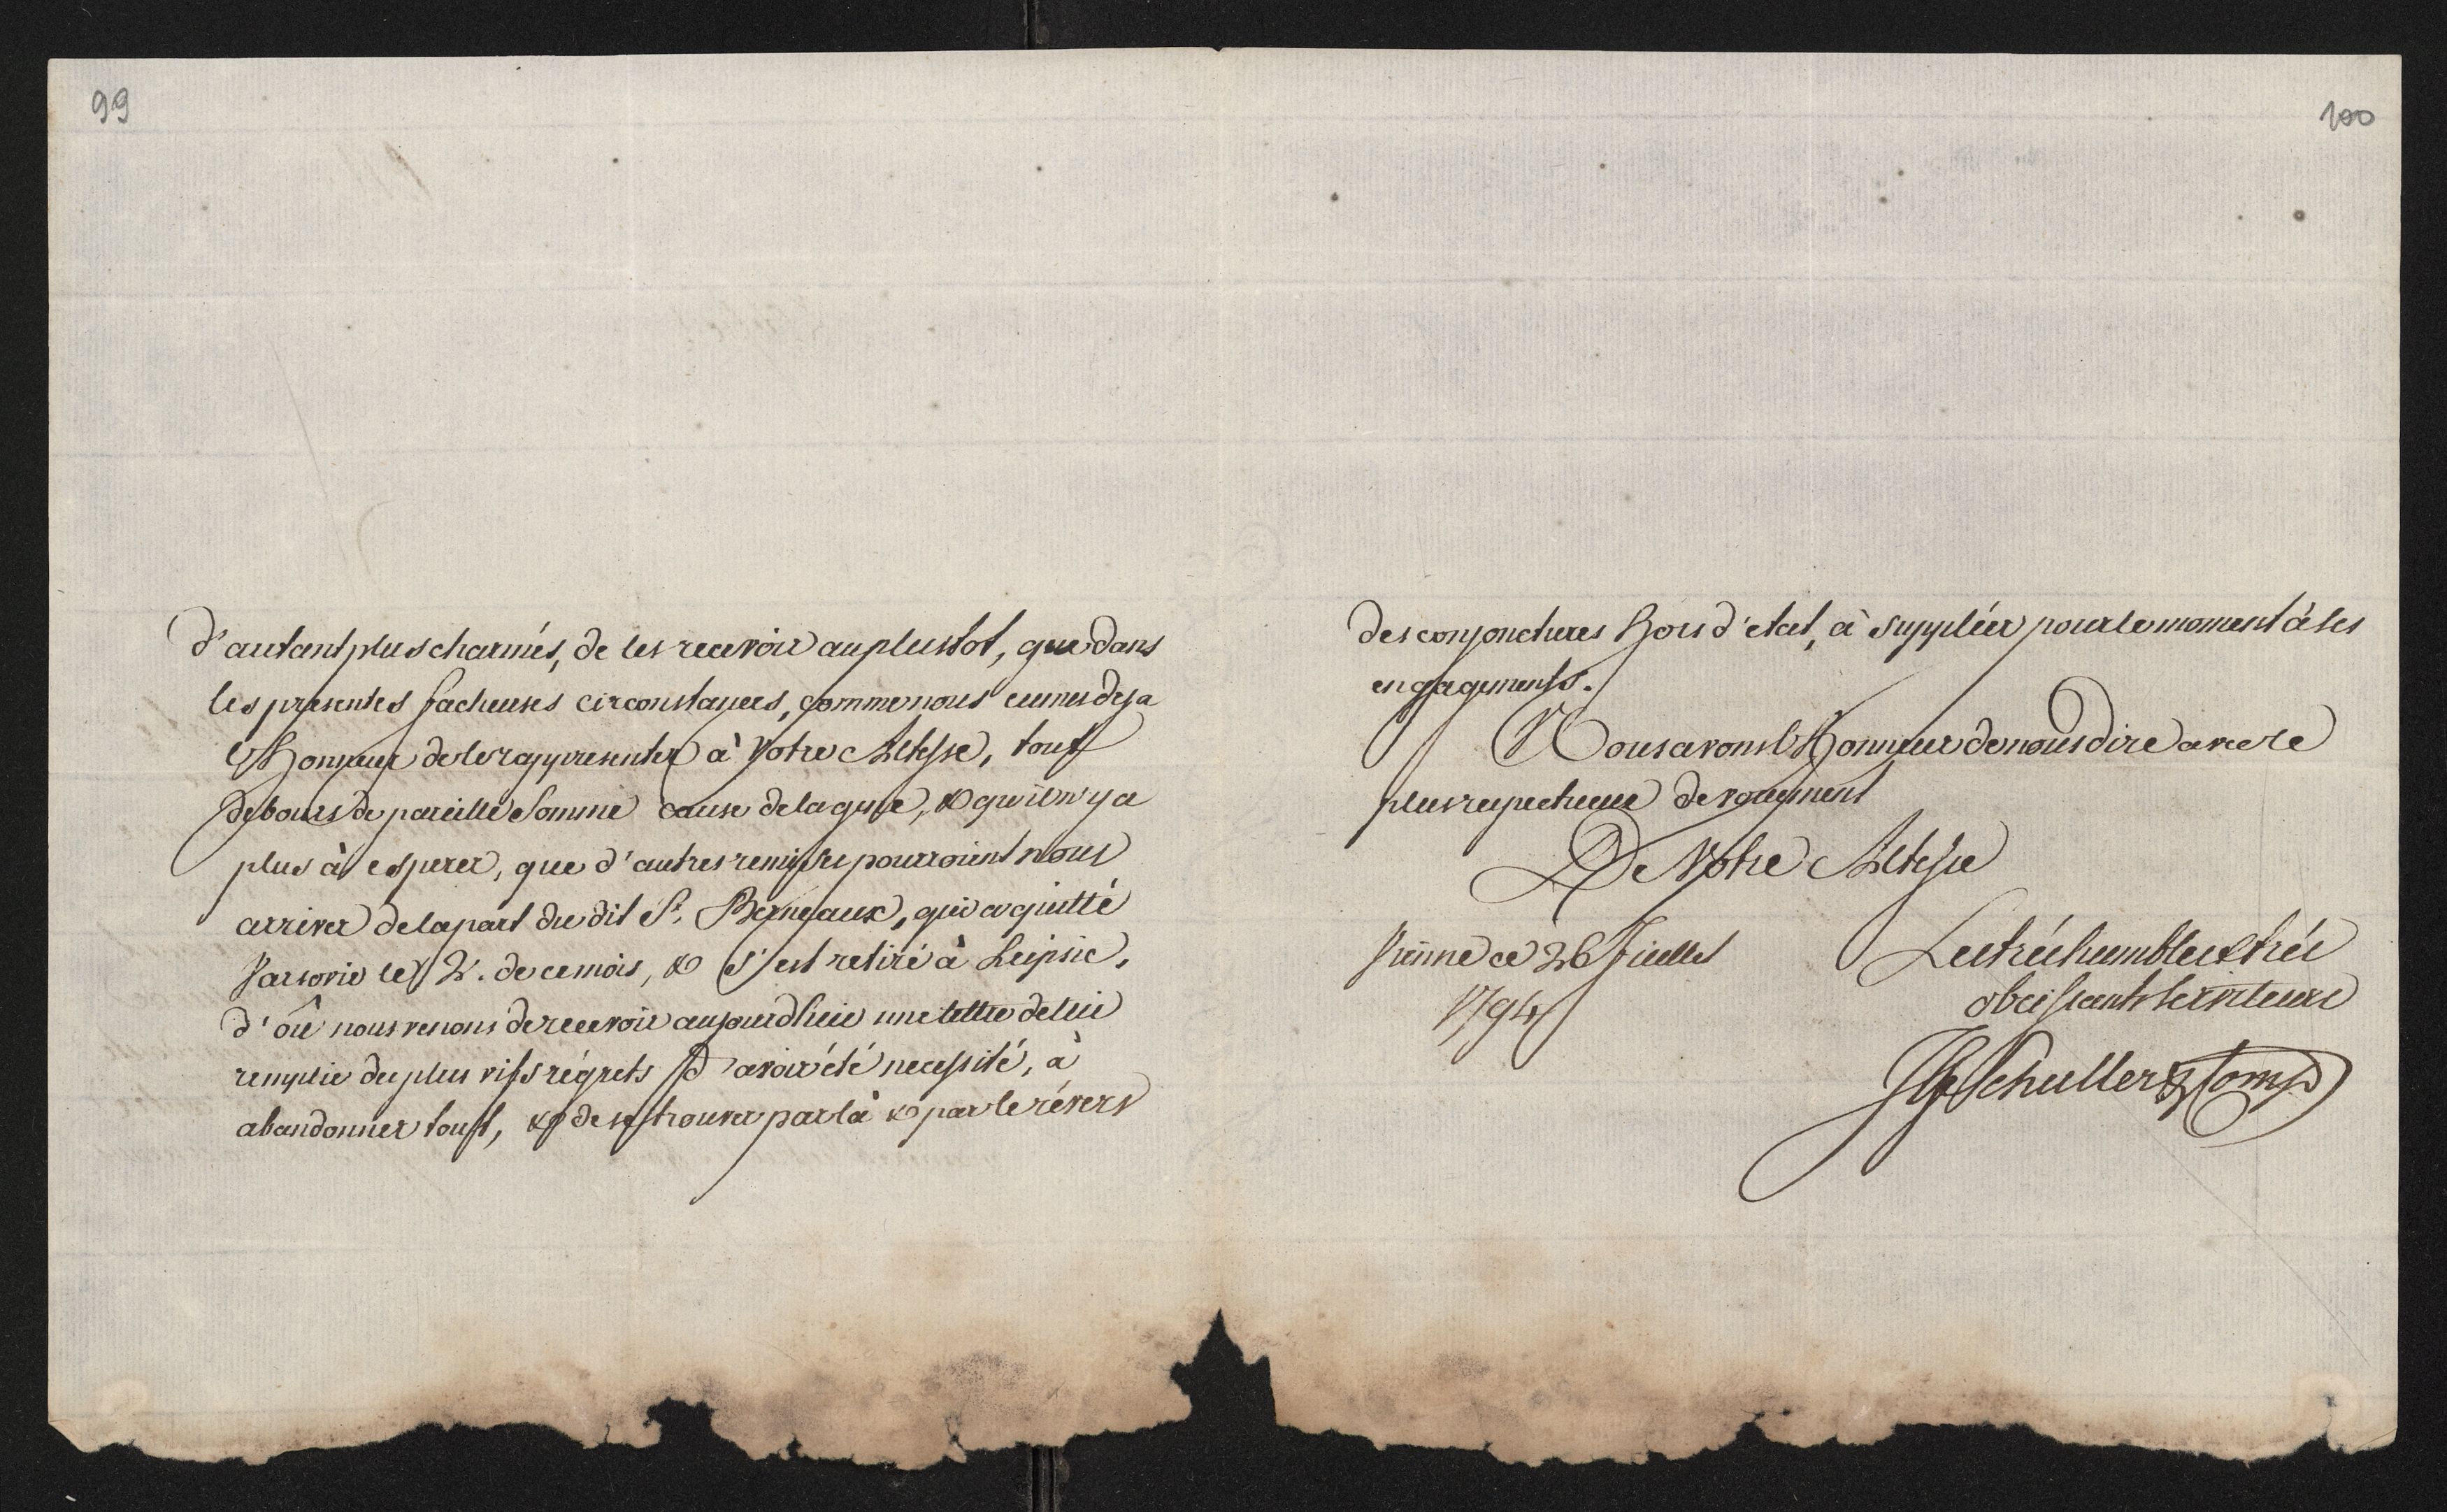 99
d'autant plus charmés, de les recevoir au plustot, que dans
les presentes facheuses circonstances, comme nous eumes deja
l'Honneur de le rappresenter à Votre Altesse, tout
debours de pareille Somme cause de la gene, & qu'il n'y a
plus à esperer, que d'autres remises pourroient nous
arriver de la part du dit Sr. Berneaux, qui a quitté
Varsovie le 2. de ce mois, & s'est retiré à Leipsic,
d'où nous venons de recevoir aujourdhui une lettre de lui
remplie du plus vifs régrets d'avoir été necessité, à
abandonner tout, & de se trouver par là & par le révers
100
des conjonctures Hors d'etat, à suppléer pour le moment à ses
engagements.
Nous avons l'Honneur de nous dire avec le
plus respectueux devouement
De Votre Altesse
Vienne ce 26 Juillet
1794
Les tréshumbles & trés
obeissants serviteurs
Schuller & Comp